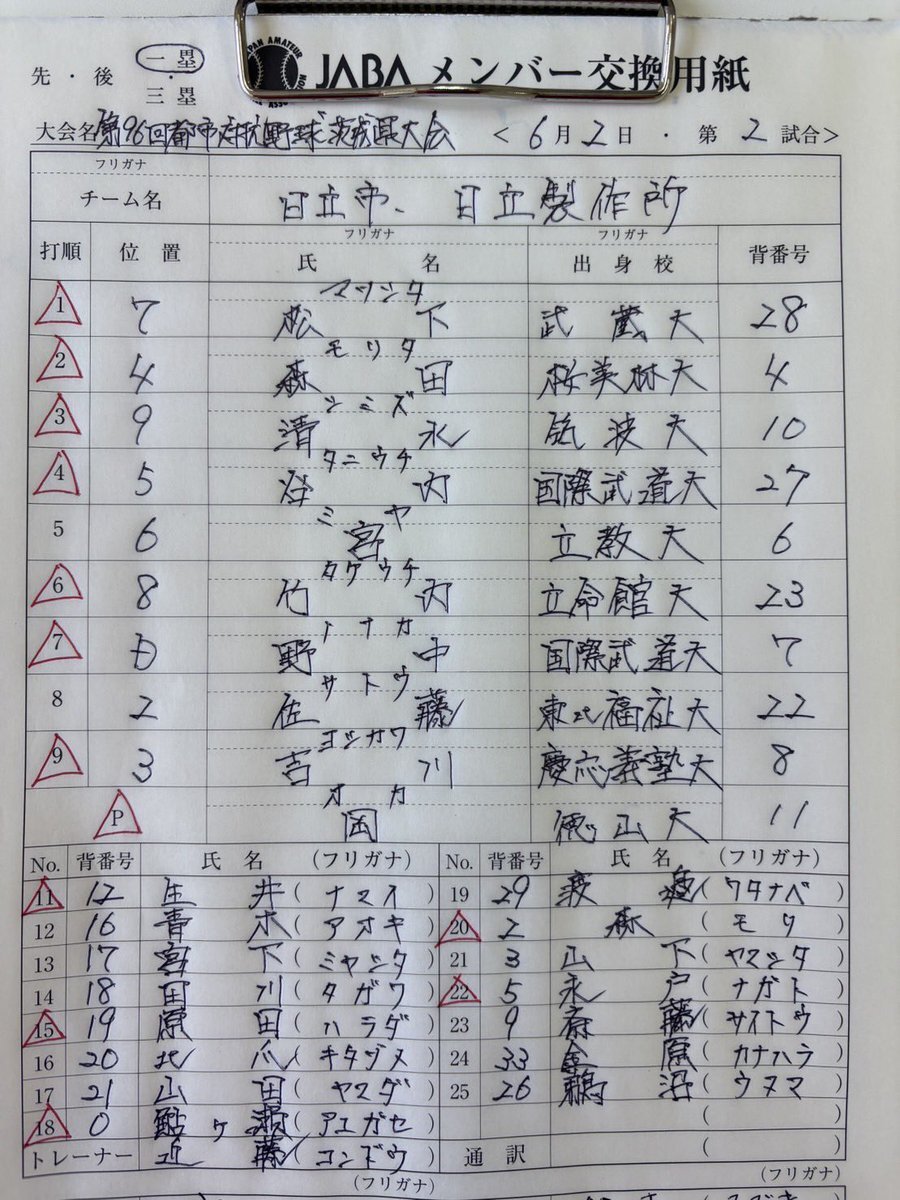 先・後 一塁・三塁 JABA メンバー交換用紙
大会名 第96回都市対抗野球茨城県大会 <6月2日・第2試合>
フリガナ
チーム名 日立市、日立製作所
打順 位置 フリガナ 氏名 フリガナ 出身校 背番号
マツシタ
1 7 松下 武蔵大 28
モリタ
2 4 森田 桜美林大 4
シミズ
3 9 清水 筑波大 10
タニウチ
4 5 谷内 国際武道大 27
ミヤ
5 6 宮 立教大 6
タケウチ
6 8 竹内 立命館大 23
ノナカ
7 D 野中 国際武道大 7
サトウ
8 2 佐藤 東北福祉大 22
ヨシカワ
9 3 吉川 慶応義塾大 8
オカ
P 岡 徳山大 11
No. 背番号 氏名 (フリガナ) No. 背番号 氏名 (フリガナ)
11 12 生井 (ナマイ) 19 29 渡邉 (ワタナベ)
12 16 青木 (アオキ) 20 2 森 (モリ)
13 17 宮下 (ミヤシタ) 21 3 山下 (ヤマシタ)
14 18 田川 (タガワ) 22 5 永戸 (ナガト)
15 19 原田 (ハラダ) 23 9 齋藤 (サイトウ)
16 20 北爪 (キタヅメ) 24 33 金原 (カナハラ)
17 21 山田 (ヤマダ) 25 26 鵜沼 (ウヌマ)
18 0 鮎ヶ瀬 (アユガセ) ( )
トレーナー 近藤 (コンドウ) 通訳 ( )
(フリガナ) (フリガナ)